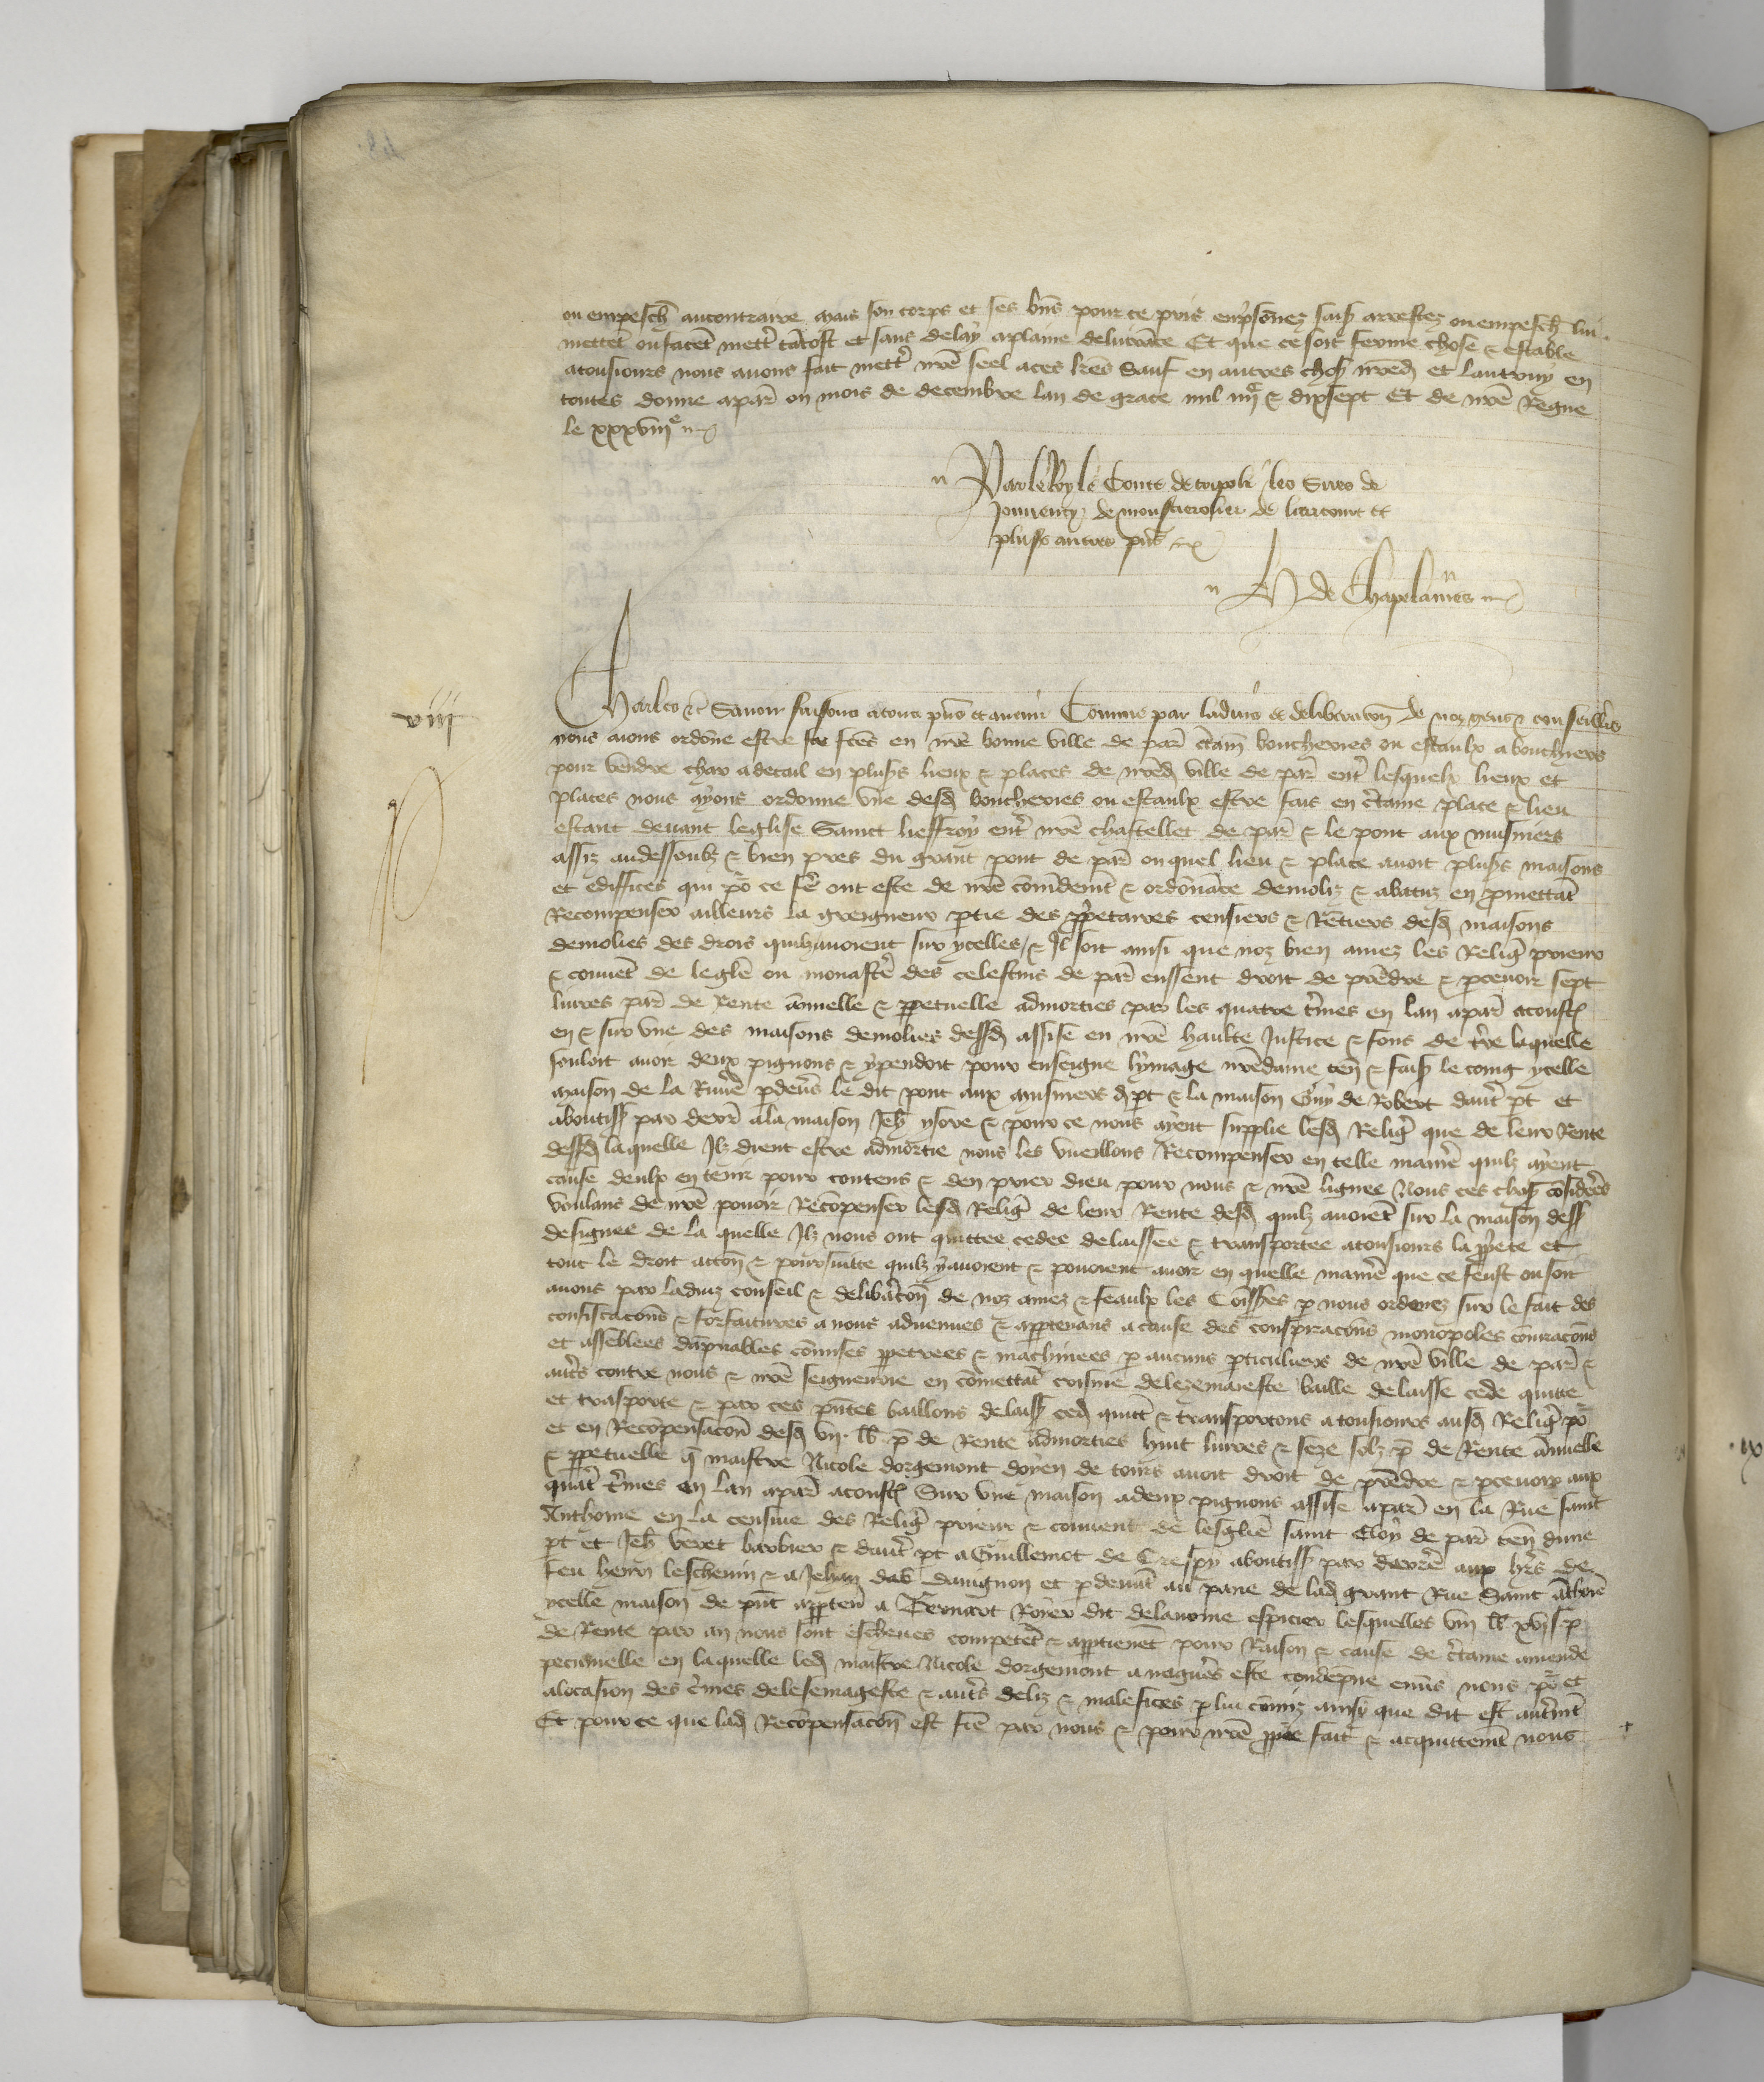 ou empesch̃ aucontraire mais son corps et ses bñs pour ce pris emp̃sõnez saisiz arrestez ou empesch̃ lui
mettet ou facẽt mettr̃ tãtost et sans delay aplaine deliurãce Et que ce soit ferme chose & estable
atousiours nous auons fait mettr̃ nr̃e seel aces lr̃es Sauf en autres choses nr̃ed̃ et lautruy en
toutes donne apar̃ ou mois de decembre lan de grace mil iiijc & dixsept Et de nr̃e Regne
le xxxviije
Par le Roy le Conte de tripoli les Sires de
de monsterolier de liarcourt et
pluss̃ autres pñs
de Chapelaines
viij
Charles &c̃ Sauoir faisons atous pñs et auenir Comme par laduis et deliberacoñ de noz gens & conseilliers
nous aions ordõne estre fctẽs en nr̃e bonne ville de par̃ c̃taines boucheries ou estaulx a bouchiers
pour vendre char adetail en plus̃s lieux & places de nr̃ed̃ ville de par̃ entr̃ lesquelx lieux et
places nous ayons ordonne vne desd̃ boucheries ou estaulx estre fais en c̃taine place & lieu
estant deuant leglise Saint lieffroy entr̃ nr̃e chastellet de par̃ & le pont aux musniers
assiz audessoubz & bien pres du grant pont de par̃ ouquel lieu & place auoit plus̃s maisons
et ediffices qui po᷑ ce fẽ ont este de nr̃e cõmãdemt̃ & ordõnãce demoliz & abatuz en p̃mettãt
Recompenser ailleurs la greigneur p̃tie des pp̃etaires censiers & Rẽtiers desd̃ maisons
demolies des drois quilz auoient sur ycelles / & Il soit ainsi que noz bien amez les Relig̃ prieur
& conuẽt de leglẽ ou monastẽ des celestins de par̃ eussent droit de prẽdre & p̃ceuoir sept
liures par̃ de Rente ãnuelle & pp̃etuelle admorties par les quatre t̃mes en lan apar̃ acoust̃
en & sur vne des maisons demolies dessd̃ assise en nr̃e haulte Justice & fons de t̃re laquelle
souloit auoir deux pignons & y pendoit pour enseigne lymage nr̃edame ten̄ & fais̃ le coing ycelle
maison de la Riuiẽ p̃deuers le dit pont aux musniers dp̃t & la maison Guy de Robert dautr̃ p̃t et
aboutiss̃ par derr̃ ala maison Jeh̃ ysore & pour ce nous aient supplie lesd̃ Relig̃ que de leur Rente
dessd̃ laquelle Ilz dient estre admortie nous les vueillons Recompenser en telle maniẽ quilz aient
cause deulx en tenir pour contens & den prier dieu pour nous & nr̃e lignee Nous ces choses cõsidẽrees
voulans de nr̃e pouoir Recõpenser lesd̃ Relig̃ de leur Rente desd̃ quilz auoiẽt sur la maison dess̃
designee de la quelle Ilz nous ont quittee cedee delaissee & transportee atousiours la pp̃iete et
tout le droit acc̃on & poursuitte quilz y auoient & pouoient auoir en quelle maniẽ que ce feust ou soit
auons par laduiz conseil & deliberac̃on de noz amez & feaulx les Com̃iss̃es p̃ nous ordenez sur le fait des
confiscac̃ons & forfaitures a nous aduenues & appartenans a cause des conspirac̃ons monopoles coniurac̃ons
et assẽblees dãpnables cõmises pp̃etrees & machinees p̃ aucuns p̃ticuliers de nr̃e ville de par̃ &
autr̃s contre nous & nr̃e seigneurie en cõmettãt crisme delezemaieste baille delaisse cede quitte
et trãsporte & par ces pñtes baillons delaiss̃ ced̃ quitt̃ & transportons atousiours ausd̃ Relig̃ po᷑
et en Recõpensac̃on desd̃ vij. lb̃. p̃ de Rente admorties huit liures & seze solz p̃ de Rente ãnuelle
& pp̃etuelle q̃ maistre Nicole dorgemont doyen de tours auoit droit de prẽdre & p̃ceuoir aux
quatr̃ t̃mes en lan apar̃ acoust̃ Sur vne maison adeux pignons assise apar̃ en la Rue saint
Anthoine en la censiue des Relig̃ prieur & conuent de leglise saint Eloy de par̃ ten̄ dune
p̃t et Jeh̃ veret barbier & dautr̃ p̃t a Guillemot de Crespy aboutiss̃ par derrẽ aux hr̃s de
feu henry leschemi & a Jehan dauignon et p̃deuãt au paue de lad̃ grant Rue Saint ãthoiẽ
ycelle maison de pñt appten̄ a Bernart Roier dit espicier lesquelles viij lb̃ xvj s̃ p̃
de Rente par an nous sont escheues competẽt & apptienẽt pour Raison & cause de c̃taine amende
pecuniuelle en laquelle led̃ maistre Nicole dorgemont a nagueres este condẽpne enũs nous po᷑ et
alocasion des c̃mes delesemageste & autr̃s deliz & malefices p̃ lui cõmis ainsy que dit est autr̃mt̃
Et pour ce que lad̃ Recõpensac̃on est fcẽ par nous & pour nr̃e pp̃re fait & acquittemt̃ nous
ix